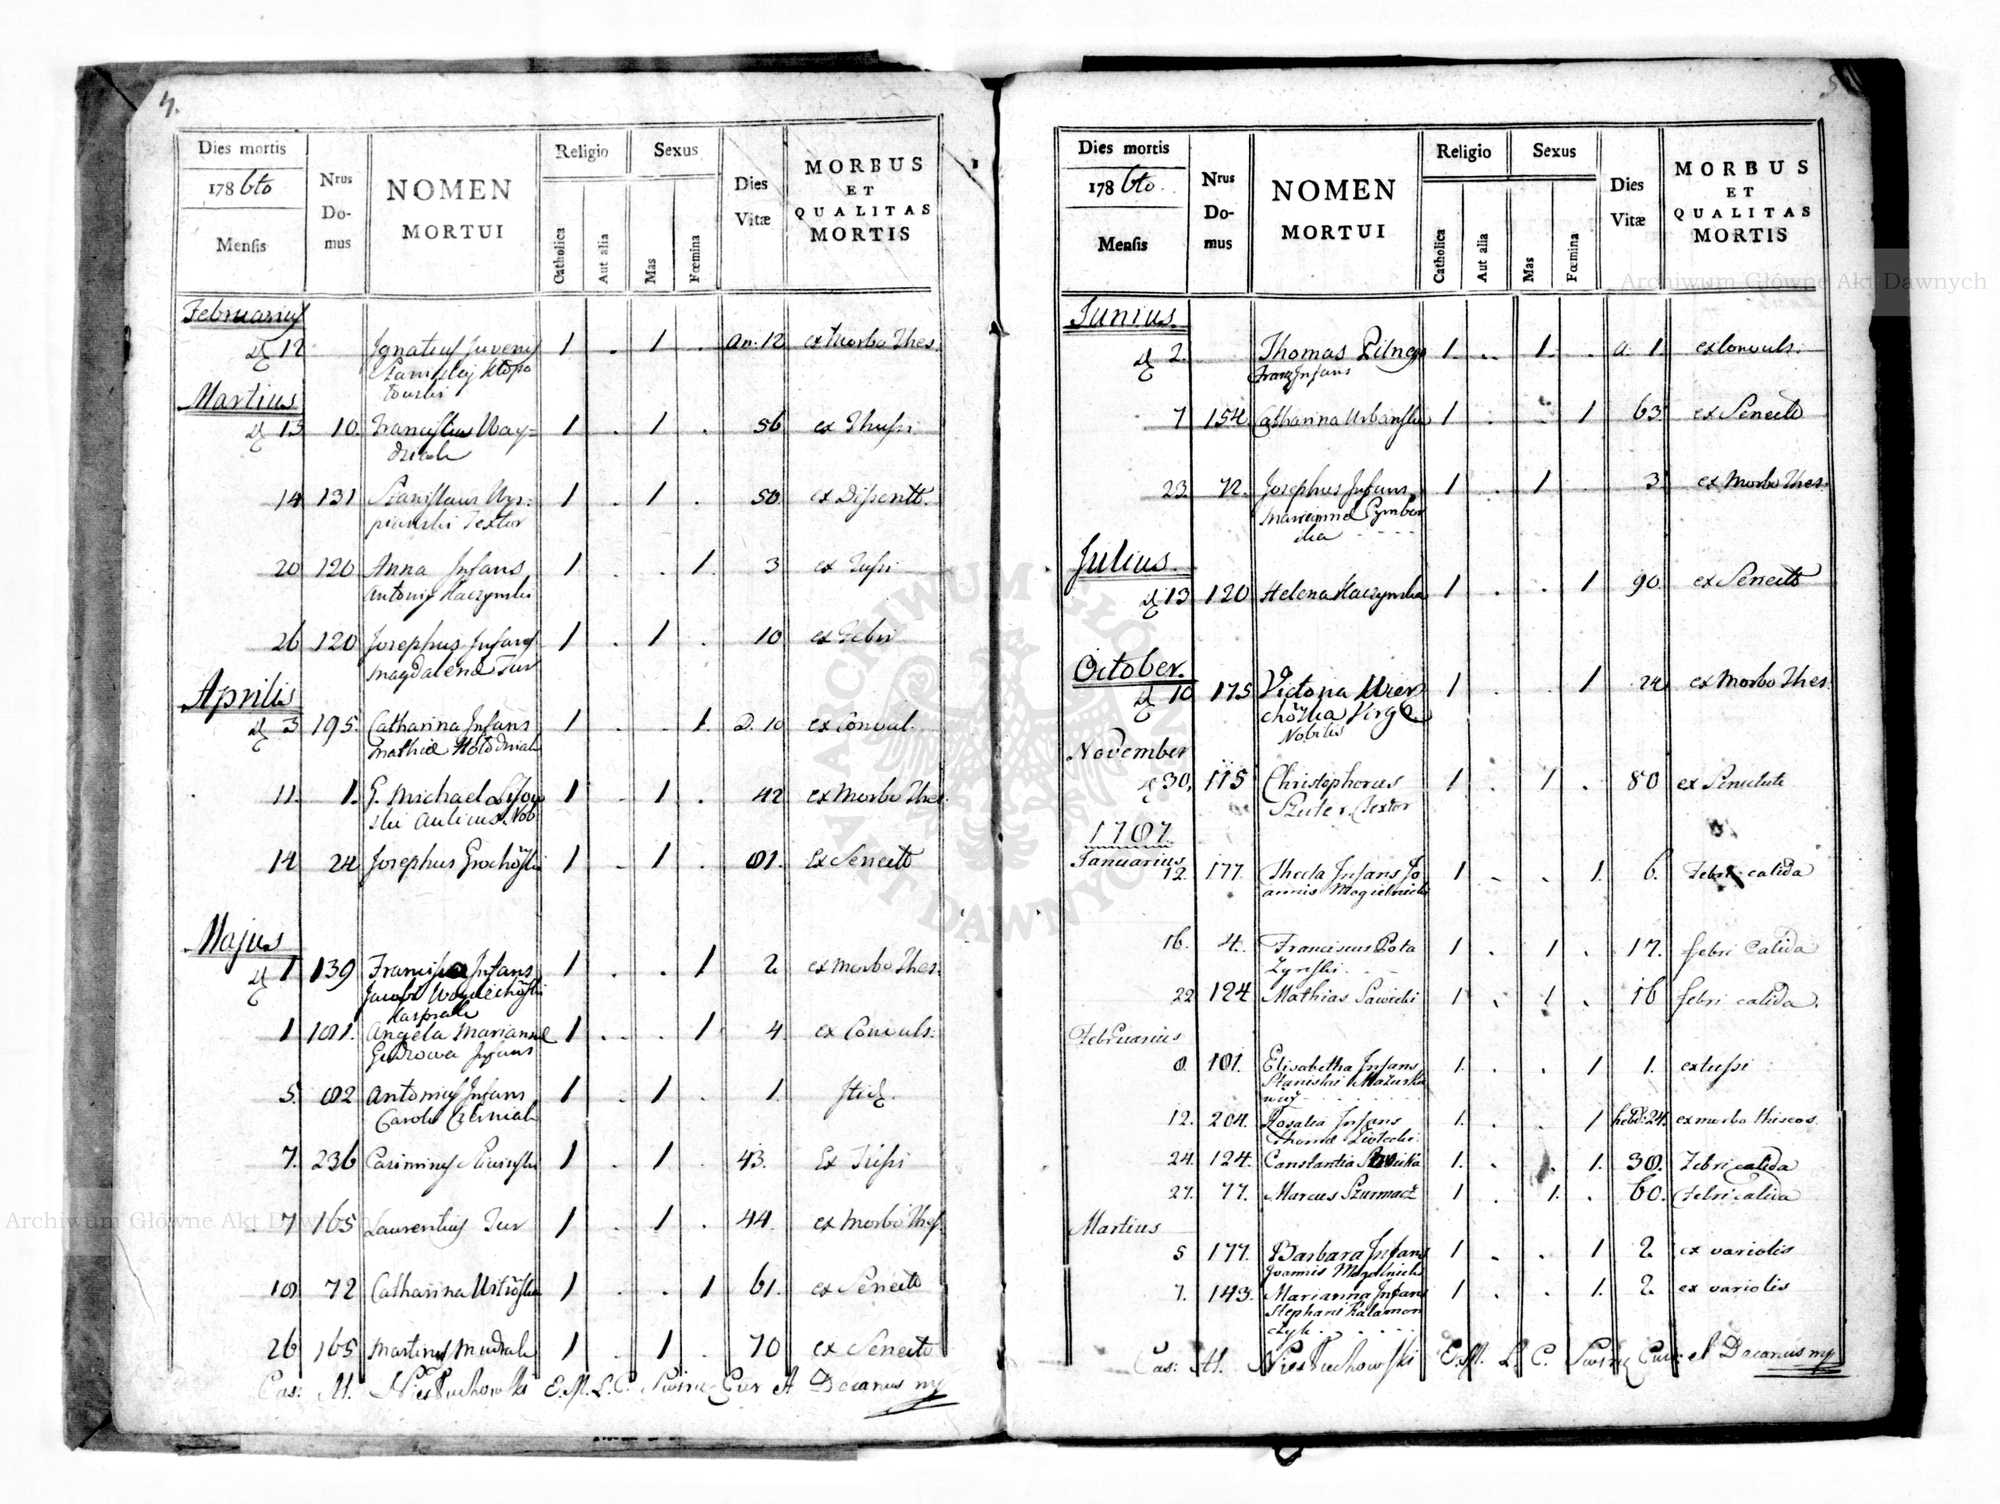 4.
Dies mortis
1786to
Mensis
Nrus Domus
NOMEN MORTUI
Religio
Catholica
Aut alia
Sexus
Mas
Fœmina
Dies Vitæ
MORBUS ET QUALITAS MORTIS
Februarius
12 Ignatius Juvenis 1 . 1 . an: 12 ex Morbo Thes.
Stanislaj
Martius
13 10. Franciscus Way= 1 . 1 . 56 ex Thussi
dziak
14 131 Stanislaus Wys= 1 . 1 . 50 ex Dissent.
pianski Textor
20 120 Anna Infans 1 . . 1. 3 ex Tussi
Antonij Kaczynski
26 120 Josephus Infans 1 . 1 . 10 ex Febri
Magdalena Tur
Aprilis
3 195. Catharina Infans 1 . . 1. D. 10 ex Convul.
Mathiæ Hołodniak
11. 1. G. Michael 1 . 1 . 42 ex Morbo Thes
ski Aulicus Nob
14 24 Josephus Grochowski 1 . 1 . 81. Ex Senect
Majus
1 139 Francisca Infans 1 . . 1 2 ex Morbo Thes.
Jacobi
1 181. Angela Marianne 1 . . 1 4 ex Convuls:
Infans
5. 82 Antonius Infans 1 . 1 . 1.
Caroli
7. 236 Casimirus 1 . 1 . 43. Ex Tussi
7 165 Laurentius Tur 1 . 1 . 44. ex Morbo Thes
18 72 Catharina 1 . . 1 61. ex Senect
26 165 Martinus Mudrak 1 . 1 . 70 ex Senect
Cas: M. Niestuchowski E.M. L. C. Cur et Decanus mp
5
Dies mortis
1786to.
Mensis
Nrus Domus
NOMEN MORTUI
Religio
Catholica
Aut alia
Sexus
Mas
Fœmina
Dies Vitæ
MORBUS ET QUALITAS MORTIS
Junius.
2. Thomas 1. . 1. . a. 1. ex Convuls:
Infans
7 154. Catharina Urbanska 1 . . 1 63 ex Senect
23 72. Josephus Infans 1 . 1 . 3. ex Morbo Thes.
Marianna
Julius.
13 120 Helena Kaczynska 1 . . 1 90. ex Senect
October.
10 175 Victoria Wier 1 . . 1 24 ex Morbo Thes
chowska Virgo
Nobilis
November
30, 115 Christophorus 1. . 1 . 80 ex Senectute
Szuter. Textor
1787
Januarius
12. 177. Thecla Infans Jo 1 . . 1. 6. Febri calida
annis Mogielnicki
16. 4. Franciscus Pota 1. . 1 . 17. febri Calida
zynski
22 124 Mathias Sawicki 1 . 1 . 16 febri calida.
Februarius
8. 181. Elisabetha Infans 1. . . 1 1. ex tussi
Stanislai
12. 204. Rosalia Infans 1. . . 1 hebd: 24. ex morbo thiseos
Thomæ
24. 124. Constantia Sawicka 1. . . 1. 38. Febri calida
27. 77. Marcus Szurmacz 1 . 1. . 60. Febri calida
Martius
5 177. Barbara Infans 1 . . 1 2. ex variolis
Joannis
7. 143. Marianna Infans 1 . . 1. 2. ex variolis
Stephani Kalamon
czyk
Cas: M. Niestuchowski E.M. L. C. Cur: et Decanus mp
Archiwum Główne Akt Dawnych
Archiwum Główne Akt Dawnych
ARCHIWUM GŁÓWNE AKT DAWNYCH